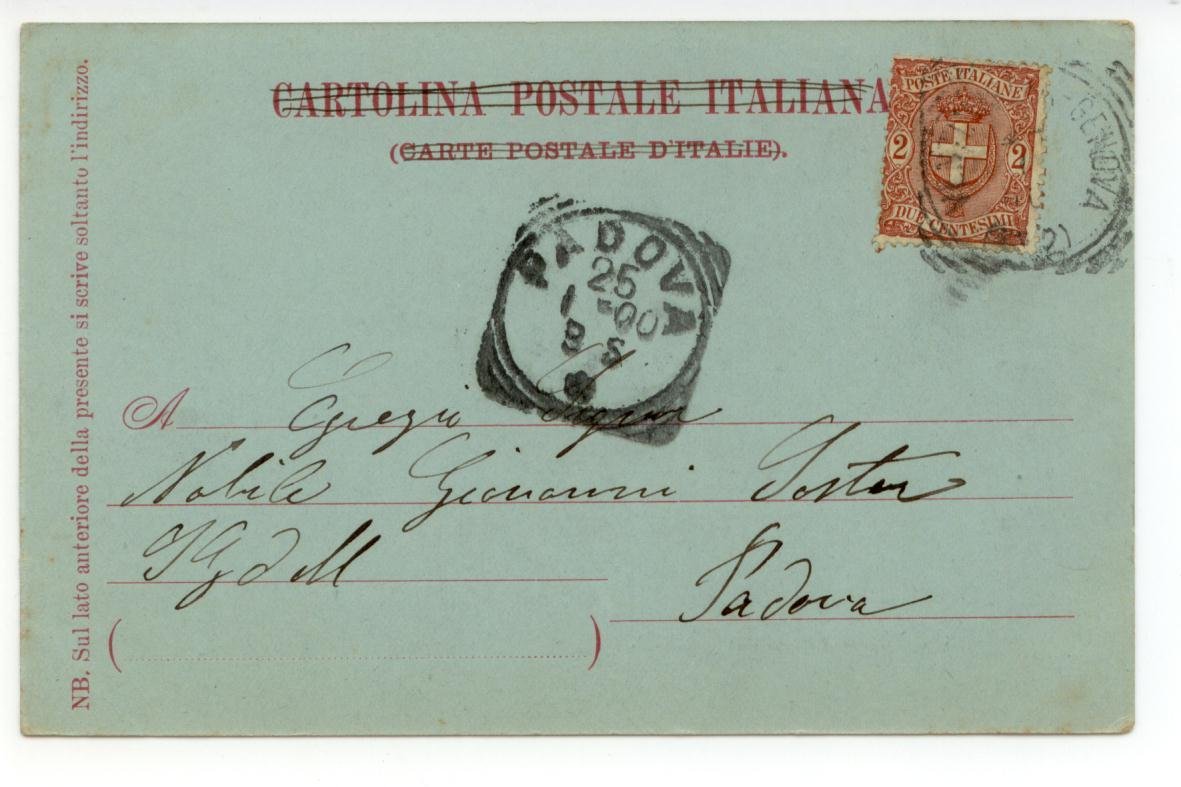 CARTOLINA POSTALE ITALIANA
(CARTE POSTALE D'ITALIE).
NB. Sul lato anteriore della presente si scrive soltanto l'indirizzo.
POSTE ITALIANE
2 2
DUE CENTESIMI
-GENOVA
PADOVA
25
1 -00
8 S
A Egregio Signor
Nobile Giovanni
Padova